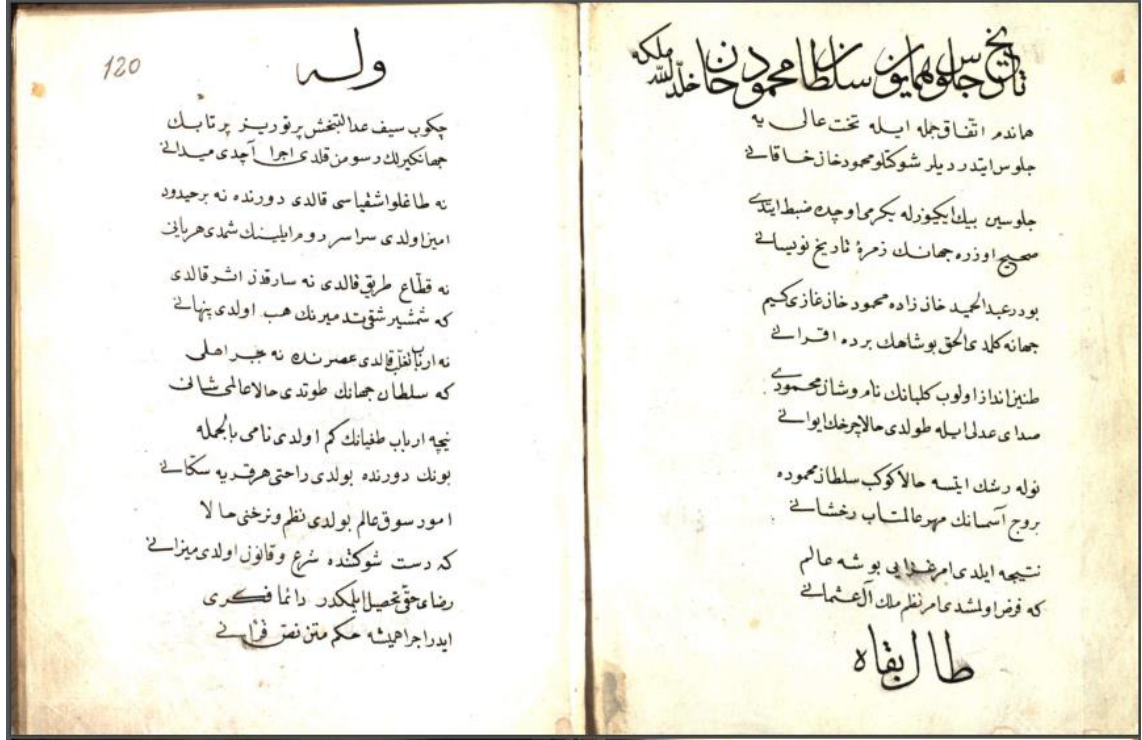 تاریخ جلوس همایون سلطان محمود خان خلّد الله ملکه
هماندم اتفاق جمله ایله تخت عالی یه
جلوس ایتدردیلر شوکتلو محمود خان خاقانی
جلوسین بیك ایکیوزله یکرمی اوچده ضبط ایتدی
صحیح اوزره جهانك زمرهٔ تاریخ نویسانی
بودر عبدالحمید خان زاده محمود خان غازی کیم
جهانه کلدی الحق بو شاهك برده اقرانی
طنین انداز اولوب کلبانك نام و شان محمودی
صدای عدلی ایله طولدی حالا چرخك ایوانی
نوله رشك ایتسه حالا کوکب سلطان محموده
بروج آسمانك مهر عالمتاب رخشانی
نتیجه ایلدی امر غزایی بو شه عالم
که فوض اولمشدی امر نظم ملك آل عثمانی
طال بقاه
120
وله
چکوب سیف عدالتبخش پرتوریز پرتابك
جهانکیرلك رسومن قلدی اجرا آچدی میدانی
نه طاغلو اشقیاسی قالدی دورنده نه بر حیدود
امین اولدی سراسر روم ایلینك شمدی هر یانی
نه قطّاع طریق قالدی نه سارقدن اثر قالدی
که شمشیر شقی تدمیرنك هب اولدی پنهانی
نه ارباب تغلّب قالدی عصرنده نه جبر اهلی
که سلطان جهانك طوتدی حالا عالمی شانی
نیچه ارباب طغیانك کم اولدی نامی بالجمله
بونك دورنده بولدی راحتی هر قریه سکّانی
امور سوق عالم بولدی نظم و نرخنی حالا
که دست شوکتنده شرع و قانون اولدی میزانی
رضای حقّی تحصیل ایلمکدر دائما فکری
ایدر اجرا همیشه حکم متن نصّ قرآنی